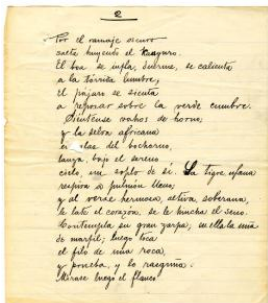 2
Por el ramaje oscuro
salta huyendo el kanguro.
El boa se infla, duerme, se calienta
a la tórrida lumbre;
el pájaro se sienta
a reposar sobre la verde cumbre.
Siéntense vahos de horno;
y la selva africana
en alas del bochorno,
lanza, bajo el sereno
cielo, un soplo de sí. La tigre ufana
respira a pulmón lleno,
y al verse hermosa, altiva, soberana,
le late el corazón, se le hincha el seno.
Contempla su gran zarpa, en ella la uña
de marfil; luego toca
el filo de una roca,
y prueba, y lo rasguña.
Mírase luego el flanco